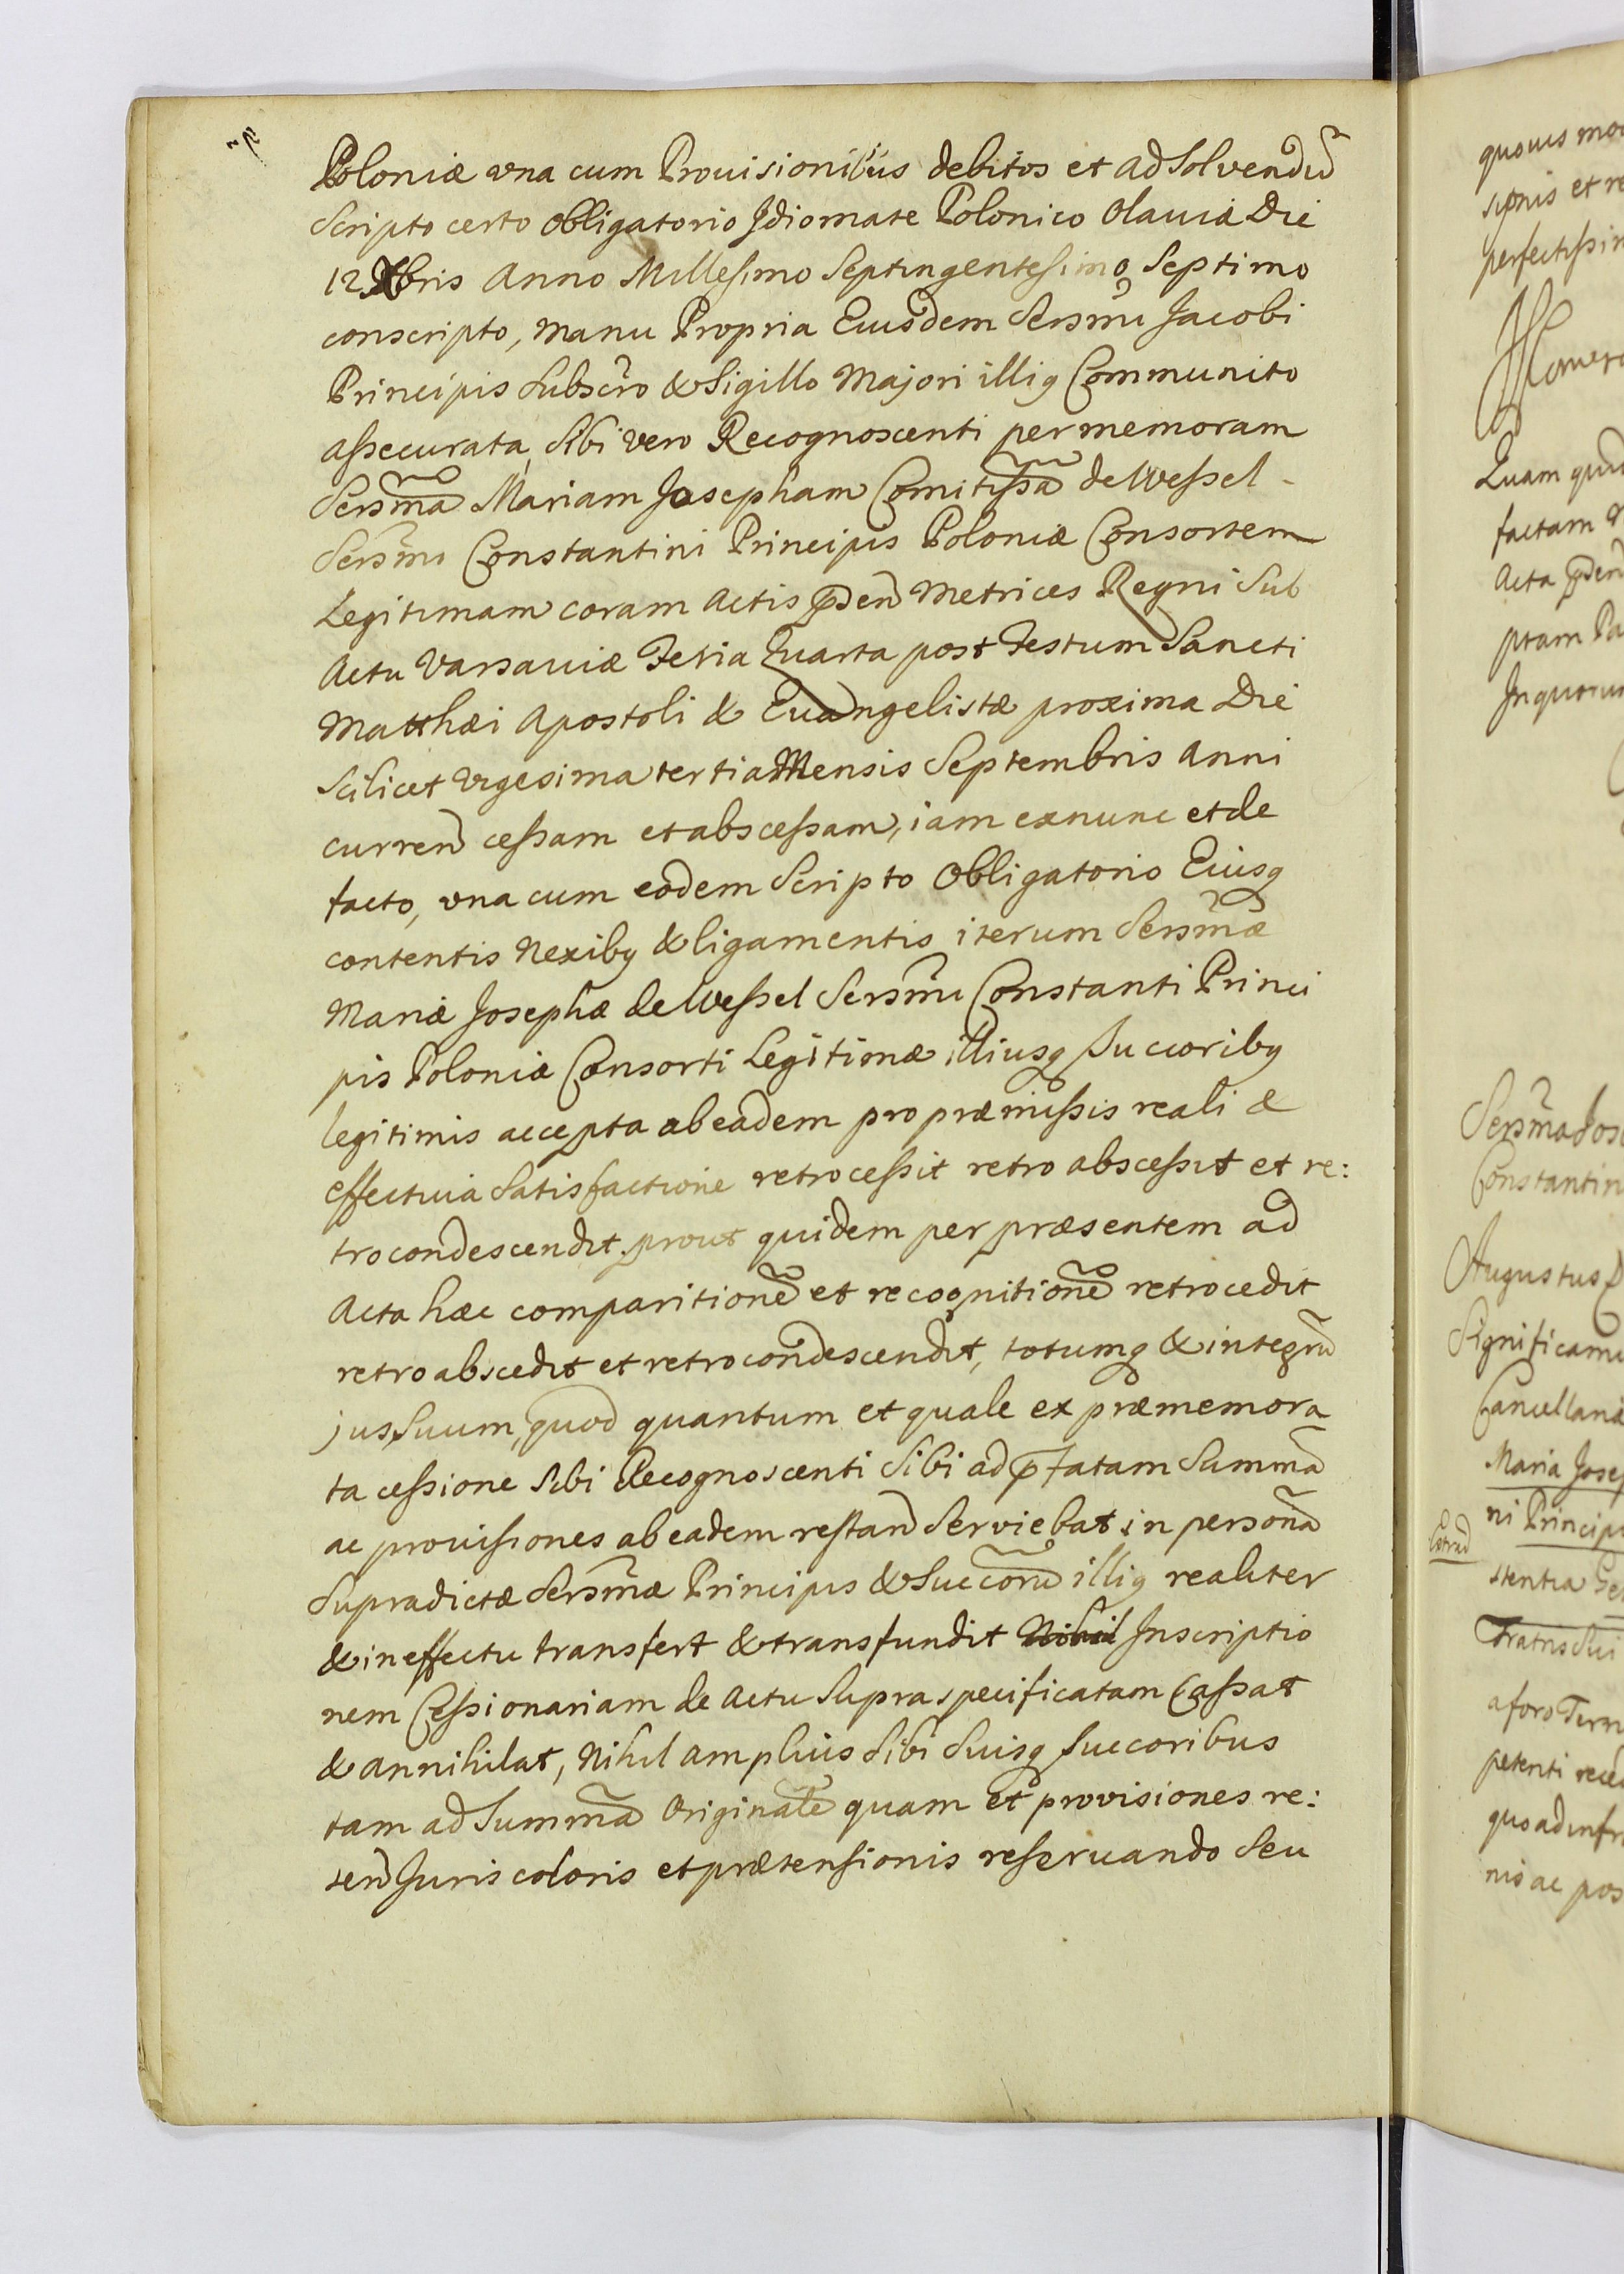 Poloniæ vna cum Prouisionibus debitos et ad Solvendũ
Scripto certo Obligatorio Jdiomate Polonico Olaviæ Die
12 Xbris Anno Millesimo Septingentesimo Septimo
conscripto, Manu Propria Eiusdem Sersm̃i Jacobi
Principis Subscr̃o & Sigillo Majori illiq Communito
assecurata, Sibi vero Recognoscenti per memoram
Sersm̃a Mariam Josepham Comitissã de Wessel -
Sersm̃i Constantini Principis Poloniæ Consortem
Legitimam coram Actis p̃den Metrices Regni Sub
Actu Varsaviæ Feria Quarta post Festum Sancti
Matthæi Apostoli & Evangelistæ proxima Die
Scilicet Vigesima tertia Mensis Septembris Anni
curren cessam et abscessam, iam exnunc et de
facto, vna cum eodem Scripto Obligatorio Eiusq
contentis Nexibq & ligamentis iterum Sersm̃æ
Mariæ Josephæ de Wessel Sersm̃i Constanti Princi
pis Poloniæ Consorti Legitimæ illiusq Succoribq
legitimis accepta ab eadem pro præmissis reali &
effectiua Satisfactione retrocessit retro abscessit et re:
trocondescendit prout quidem per præsentem ad
Acta hæc comparitionẽ et recognitionẽ retrocedit
retro abscedit et retrocondescendit, totumq & integrũ
jus Suum, quod quantum et quale ex præmemora
ta cessione Sibi Recognoscenti Sibi ad p̃fatam Summã
ac provisiones ab eadem restan Serviebat in personã
Supradictæ Sersm̃æ Principis & Succorũ illiq realiter
& in effectu transfert & transfundit Nihil Jnscriptio
nem Cessionariam de Actu Supra specificatam Cassat
& annihilat, Nihil amplius Sibi Suisq Succoribus
tam ad Summã Originalẽ quam et provisiones re:
ten Juris coloris et prætensionis reservando Seu
quouis mo
perfectissi
Quam
factam
Acta p̃den
ptam Pa
Jnquorum
Sersm̃a Jos
Constantin
Augustus
Significamu
Cancellariæ
Maria Jose
ni Princip
stentia
Fratris Sui
a foro
petenti rece
quo ad infr
nis ac pos